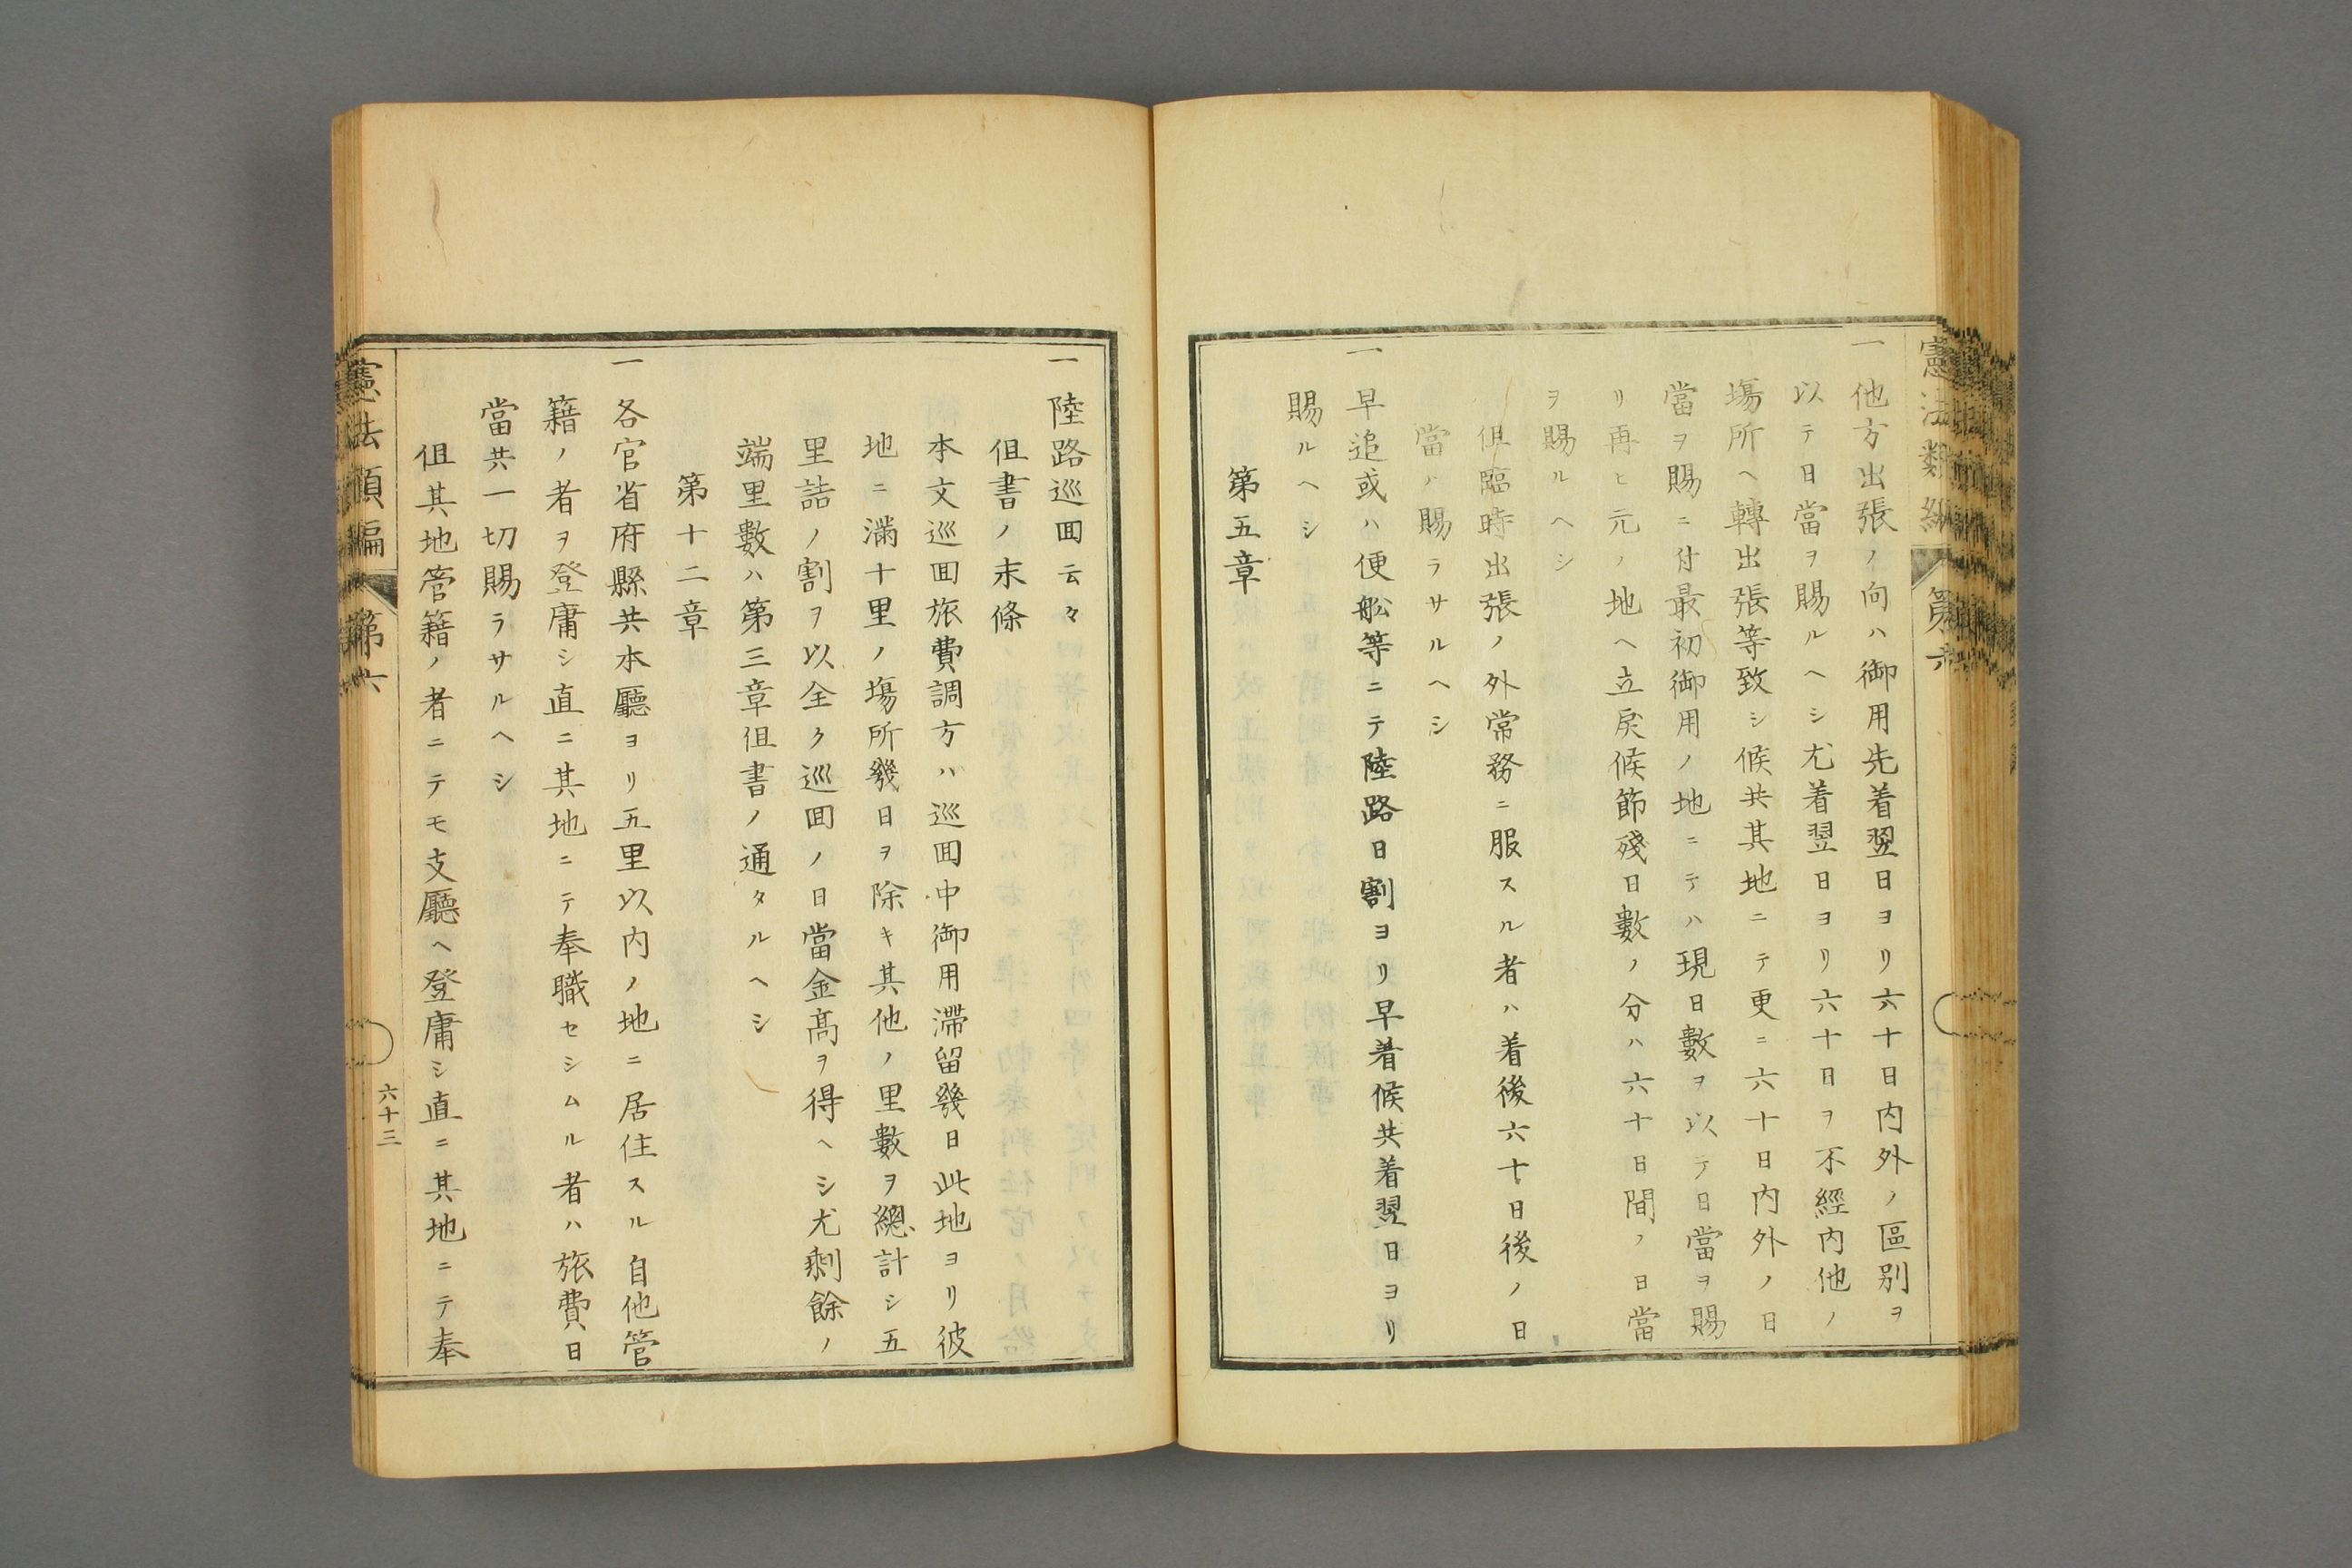 憲法類編
第六
一他方出張ノ向ハ御用先着翌日ヨリ六十日内外ノ區别ヲ
以テ日當ヲ賜ルヘシ尤着翌日ヨリ六十日ヲ不經内他ノ
塲所ヘ轉出張等致シ候共其地ニテ更ニ六十日内外ノ日
當ヲ賜ニ付最初御用ノ地ニテハ現日數ヲ以テ日當ヲ賜
リ再ヒ元ノ地ヘ立戻候節殘日數ノ分ハ六十日間ノ日當
ヲ賜ルヘシ
但臨時出張ノ外常務ニ服スル者ハ着後六十日後ノ日
當ハ賜ラサルヘシ
一早追或ハ便舩等ニテ陸路日割ヨリ早着候共着翌日ヨリ
賜ルヘシ
第五章
一陸路巡囬云々
但書ノ末條
本文巡囬旅費調方ハ巡囬中御用滯留發日此地ヨリ彼
地ニ滿十里ノ塲所發日ヲ除キ其他ノ里數ヲ總計シ五
里詰ノ割ヲ以全ク巡囬ノ日當金髙ヲ得ヘシ尤剩餘ノ
端里數ハ第三章但書ノ通タルヘシ
第十二章
一各官省府縣共本廳ヨリ五里以内ノ地ニ居住スル自他管
籍ノ者ヲ登庸シ直ニ其地ニテ奉職セシムル者ハ旅費日
當共一切賜ラサルヘシ
但其地管籍ノ者ニテモ支廳ヘ登庸シ直ニ其地ニテ奉
憲法類編
第六
六十三